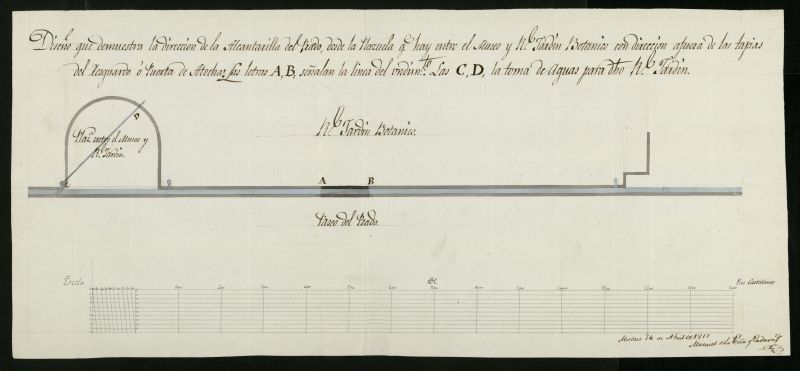 Diseño que demuestra la direccion de la Alcantarilla del Prado, desde la Plazuela q.e hay entre el Museo y R.l Jardin Botanico con direccion afuera de las tapias
del Resguardo ó Puerta de Atocha. Las letras A, B, señalan la linea del undim.to Las C, D, la toma de Aguas para dho R.l Jardin.
D
Plaz.a entre el Museo y
R.l Jardin.
R.l Jardin Botanico.
C
A B
Paseo del Prado.
Escala
100 200 300 400 500 600 700 800 900 1000 1100 1200 1300 1400 1500
Pies Castellanos
Madrid 24 de Abril de 1817
Manuel de la Peña y Padura